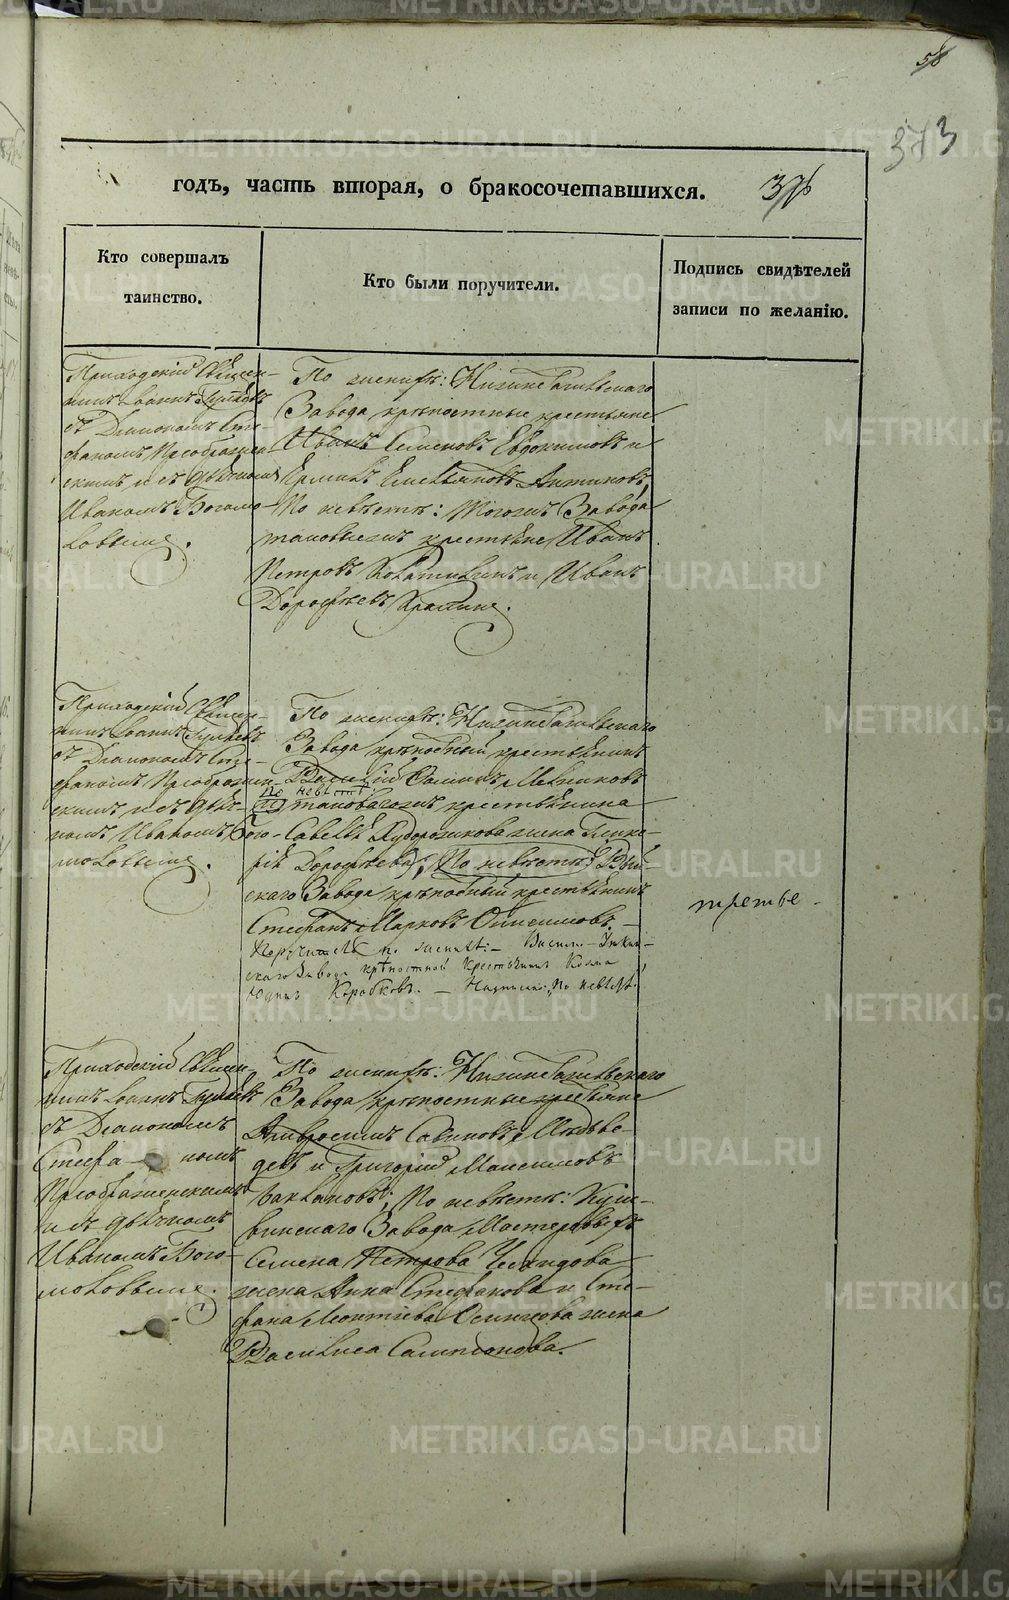 58
373
годъ, часть вторая, о бракосочетавшихся. 376
Кто совершалъ
таинство.
Кто были поручители.
Подпись свидѣтелей
записи по желанію.
Приходскій Священ-
никъ Іоаннъ
съ Діакономъ Сте-
фаномъ Преображен-
скимъ и съ дьячкомъ
Иваномъ Богомо-
ловымъ.
По женихѣ: Нижнетагильскаго
Завода крѣпостные крестьяне
Иванъ Семеновъ Евдокимовъ и
Емельяновъ Антиповъ,
По невѣстѣ: Тогожъ Завода
таковыежъ крестьяне Иванъ
Петровъ и Иванъ
Дорофѣевъ
Приходскій Священ-
никъ Іоаннъ
съ Діакономъ Сте-
фаномъ Преображен-
скимъ и съ дьяч-
комъ Иваномъ Бого-
моловымъ.
По женихѣ: Нижнетагильскаго
Завода крѣпостный крестьянинъ
Василій Мельниковъ
По невѣстѣ:
таковагожъ крестьянина
Савелья жена Глике-
рія Дорофѣева; По невѣстѣ: Вый-
скаго Завода крѣпостный крестьянинъ
Стефанъ Марковъ Онисимовъ. –
Поручитель п. женихѣ: – Висимо-Уткин-
скаго Завода крѣпостной крестьянинъ Козма
Юдинъ Коробковъ. – Надписано: „По невѣстѣ.
третье –
Приходскій Священ-
никъ Іоаннъ
съ Діакономъ
Стефа- номъ
Преображенскимъ
и съ дьячкомъ
Иваномъ Бого-
моловымъ.
По женихѣ: Нижнетагильскаго
Завода крѣпостные крестьяне
Амвросимъ Савиновъ Медвѣ-
девъ и Григорій Максимовъ
Баклановъ; По невѣстѣ: Куш-
винскаго Завода Мастероваго
Семена Петрова
жена Анна Стефанова и Сте-
фана Леонтьева жена
Василиса Сампсонова.
METRIKI.GASO-URAL.RU